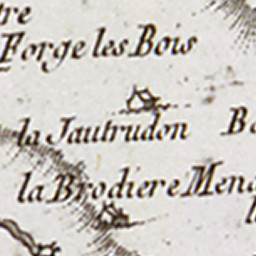 Forge les Bois
la Jautrudon
la Brodiere